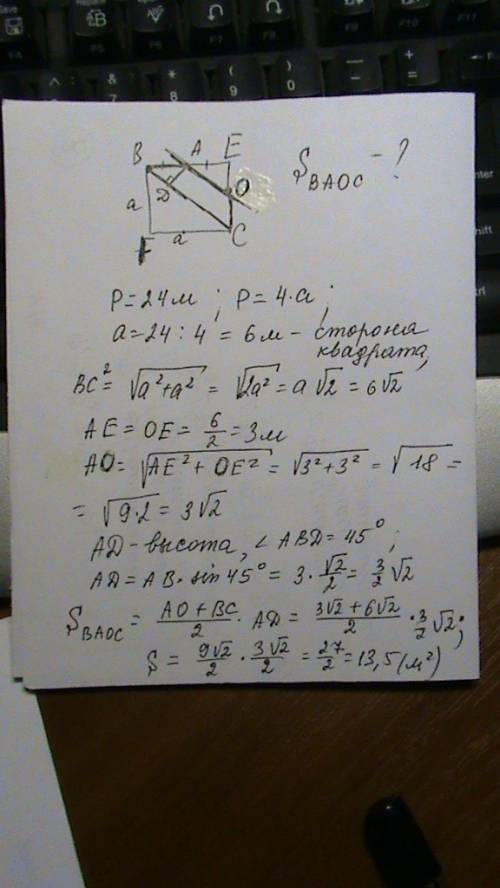 B A E
D O
a
F a C
S_BAOC - ?
P=24м ; P=4·a ;
a=24:4=6м - сторона
квадрата,
BC² = √(a²+a²) = √(2a²) = a√2 = 6√2
AE = OE = 6/2 = 3м
AO = √(AE²+OE²) = √(3²+3²) = √18 =
= √(9·2) = 3√2
AD - высота, ∠ABD = 45° ;
AD = AB·sin45° = 3·√2/2 = 3/2 √2
S_BAOC = (AO+BC)/2 · AD = (3√2+6√2)/2 · 3/2 √2 ;
S = 9√2/2 · 3√2/2 = 27/2 = 13,5 (м²)